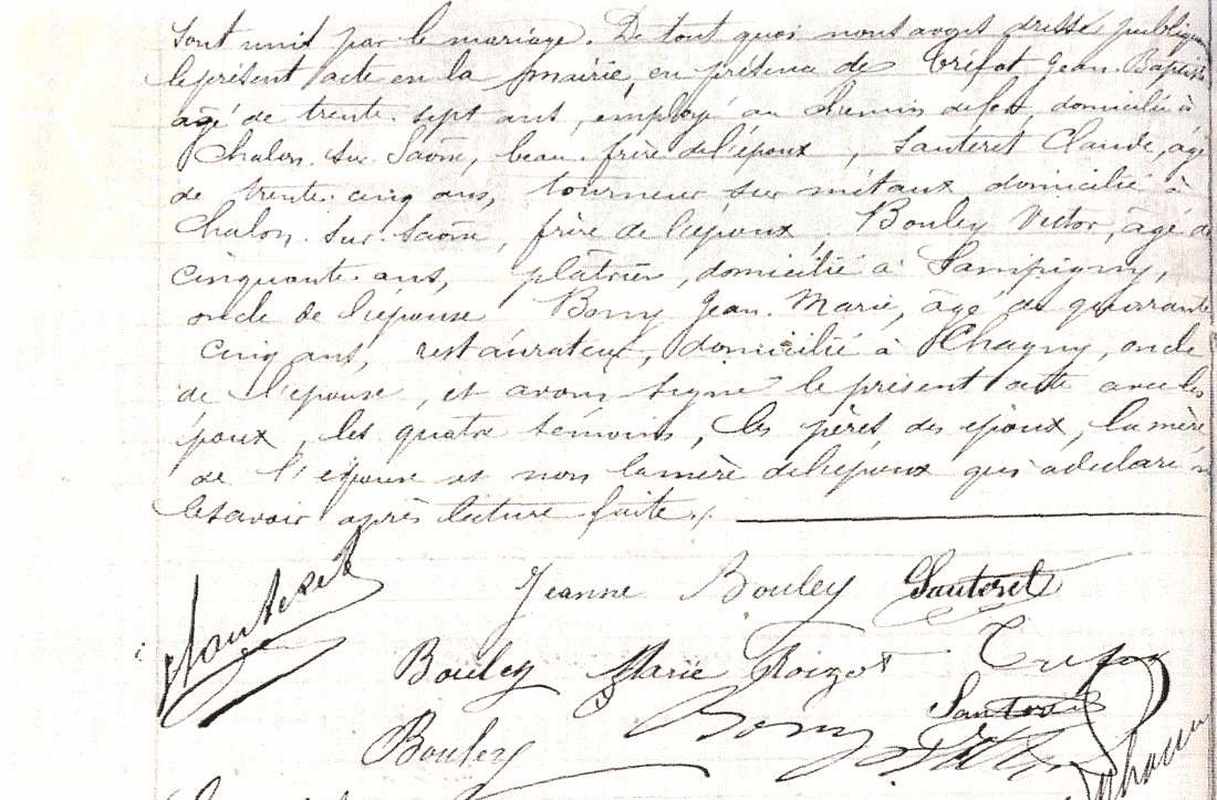 sont unis par le mariage. De tout quoi nous avons dressé publiquement
le présent acte en la mairie, en présence de Tréfot Jean-Baptiste
âgé de trente-sept ans, employé au Chemin de fer, domicilié à
Chalon-sur-Saône, beau-frère de l'époux, Sauteret Claude, âgé
de trente-cinq ans, tourneur sur métaux domicilié à
Chalon-sur-Saône, frère de l'époux, Bouley Victor, âgé de
cinquante-ans, plâtrier, domicilié à Sampigny,
oncle de l'épouse Bony Jean-Marie, âgé de quarante
cinq ans, restaurateur, domicilié à Chagny, oncle
de l'épouse, et avons signé le présent acte avec les
époux, les quatre témoins, les pères des époux, la mère
de l'épouse et non la mère de l'époux qui a déclaré ne
le savoir après lecture faite./.
Sauteret Jeanne Bouley Sauteret
Bouley Marie Roizot Trefot
Bouley Bony Sauteret